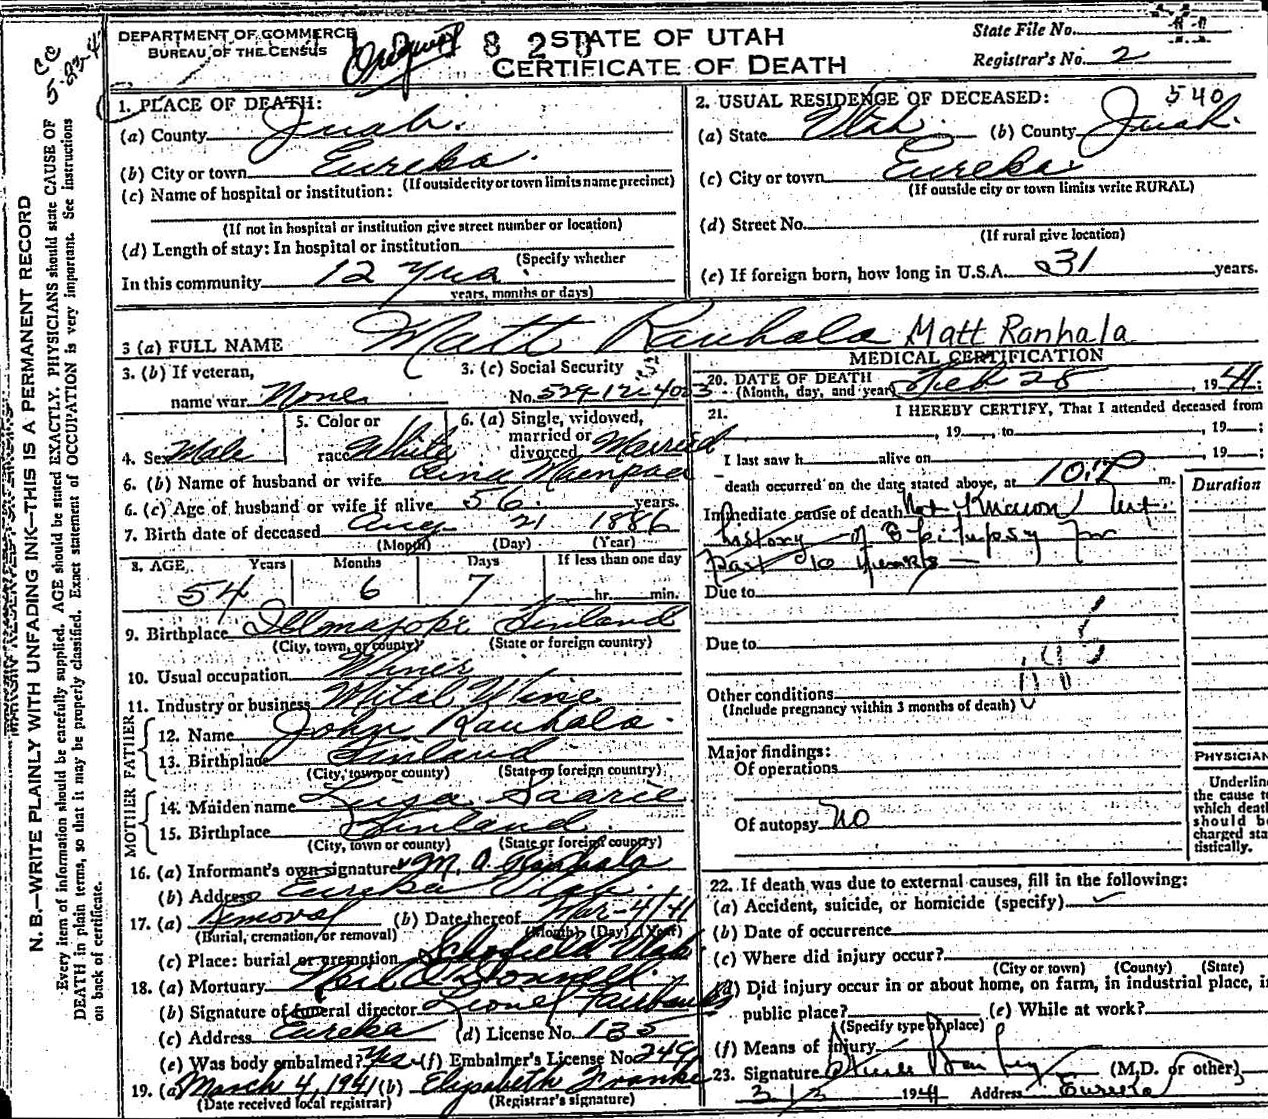 DEPARTMENT OF COMMERCE
BUREAU OF THE CENSUS
8 2 0
STATE OF UTAH
CERTIFICATE OF DEATH
State File No.
Registrar's No. 2
N. B.—WRITE PLAINLY WITH UNFADING INK—THIS IS A PERMANENT RECORD
Every item of information should be carefully supplied. AGE should be stated EXACTLY. PHYSICIANS should state CAUSE OF
DEATH in plain terms, so that it may be properly classified. Exact statement of OCCUPATION is very important. See instructions
on back of certificate.
1. PLACE OF DEATH:
(a) County Juab.
(b) City or town Eureka.
(If outside city or town limits name precinct)
(c) Name of hospital or institution:
(If not in hospital or institution give street number or location)
(d) Length of stay: In hospital or institution
(Specify whether
In this community 12 yrs
years, months or days)
2. USUAL RESIDENCE OF DECEASED: 540
(a) State Utah. (b) County Juab.
(c) City or town Eureka
(If outside city or town limits write RURAL)
(d) Street No.
(If rural give location)
(e) If foreign born, how long in U.S.A. 31 years.
3 (a) FULL NAME Matt Rauhala Matt Ranhala
3. (b) If veteran,
name war None
3. (c) Social Security
No. 529-12-4023
4. Sex Male
5. Color or
race White
6. (a) Single, widowed,
married or
divorced Married
6. (b) Name of husband or wife
6. (c) Age of husband or wife if alive 56 years.
7. Birth date of deceased Aug 21 1886
(Month) (Day) (Year)
8. AGE Years Months Days If less than one day
54 6 7 hr. min.
9. Birthplace Finland
(City, town, or county) (State or foreign country)
10. Usual occupation Miner
11. Industry or business Metal Mine
FATHER
12. Name John Rauhala.
13. Birthplace Finland
(City, town or county) (State or foreign country)
MOTHER
14. Maiden name Liisa Saarie
15. Birthplace Finland
(City, town or county) (State or foreign country)
16. (a) Informant's own signature M. A. Rauhala
(b) Address Eureka Utah.
17. (a) Removal (b) Date thereof Mar-4/41
(Burial, cremation, or removal) (Month) (Day) (Year)
(c) Place: burial or cremation Schofield Utah.
18. (a) Mortuary Neil O'Donnell.
(b) Signature of funeral director Lionel Fairbanks
(c) Address Eureka (d) License No. 135
(e) Was body embalmed? Yes (f) Embalmer's License No. 249
19. (a) March 4, 1941 (b) Elizabeth Franke
(Date received local registrar) (Registrar's signature)
MEDICAL CERTIFICATION
20. DATE OF DEATH
(Month, day, and year) Feb 28, 1941
21. I HEREBY CERTIFY, That I attended deceased from
, 19 , to , 19 ;
I last saw h alive on , 19 ;
death occurred on the date stated above, at 10:P m.
Duration
Immediate cause of death Not Known but
history of Epilepsy for
past 10 years —
Due to
Due to
Other conditions
(Include pregnancy within 3 months of death)
Major findings:
Of operations
Of autopsy no
PHYSICIAN
Underline
the cause to
which death
should be
charged sta-
tistically.
22. If death was due to external causes, fill in the following:
(a) Accident, suicide, or homicide (specify)
(b) Date of occurrence
(c) Where did injury occur?
(City or town) (County) (State)
(d) Did injury occur in or about home, on farm, in industrial place, in
public place? (e) While at work?
(Specify type of place)
(f) Means of injury
23. Signature (M.D. or other)
3/3 1941 Address Eureka